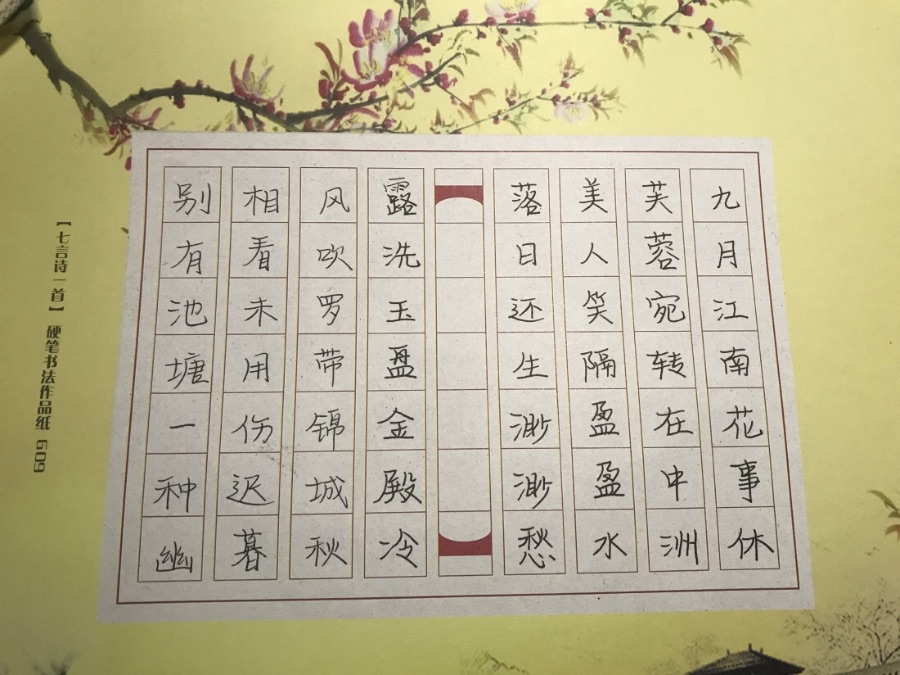 九月江南花事休
芙蓉宛转在中洲
美人笑隔盈盈水
落日还生渺渺愁
露洗玉盘金殿冷
风吹罗带锦城秋
相看未用伤迟暮
别有池塘一种幽
【七言诗一首】 硬笔书法作品纸 G09